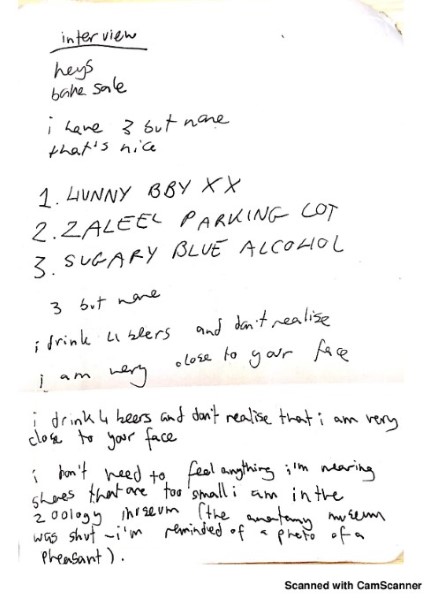 interview
heys
bake sale
i have 3 but none
that's nice
1. HUNNY BBY XX
2. ZALEEL PARKING LOT
3. SUGARY BLUE ALCOHOL
3 but none
i drink 4 beers and don't realise
i am very close to your face
i drink 4 beers and don't realise that i am very
close to your face
i don't need to feel anything i'm wearing
shoes that are too small i am in the
zoology museum (the anatomy museum
was shut – i'm reminded of a photo of a
pheasant).
Scanned with CamScanner